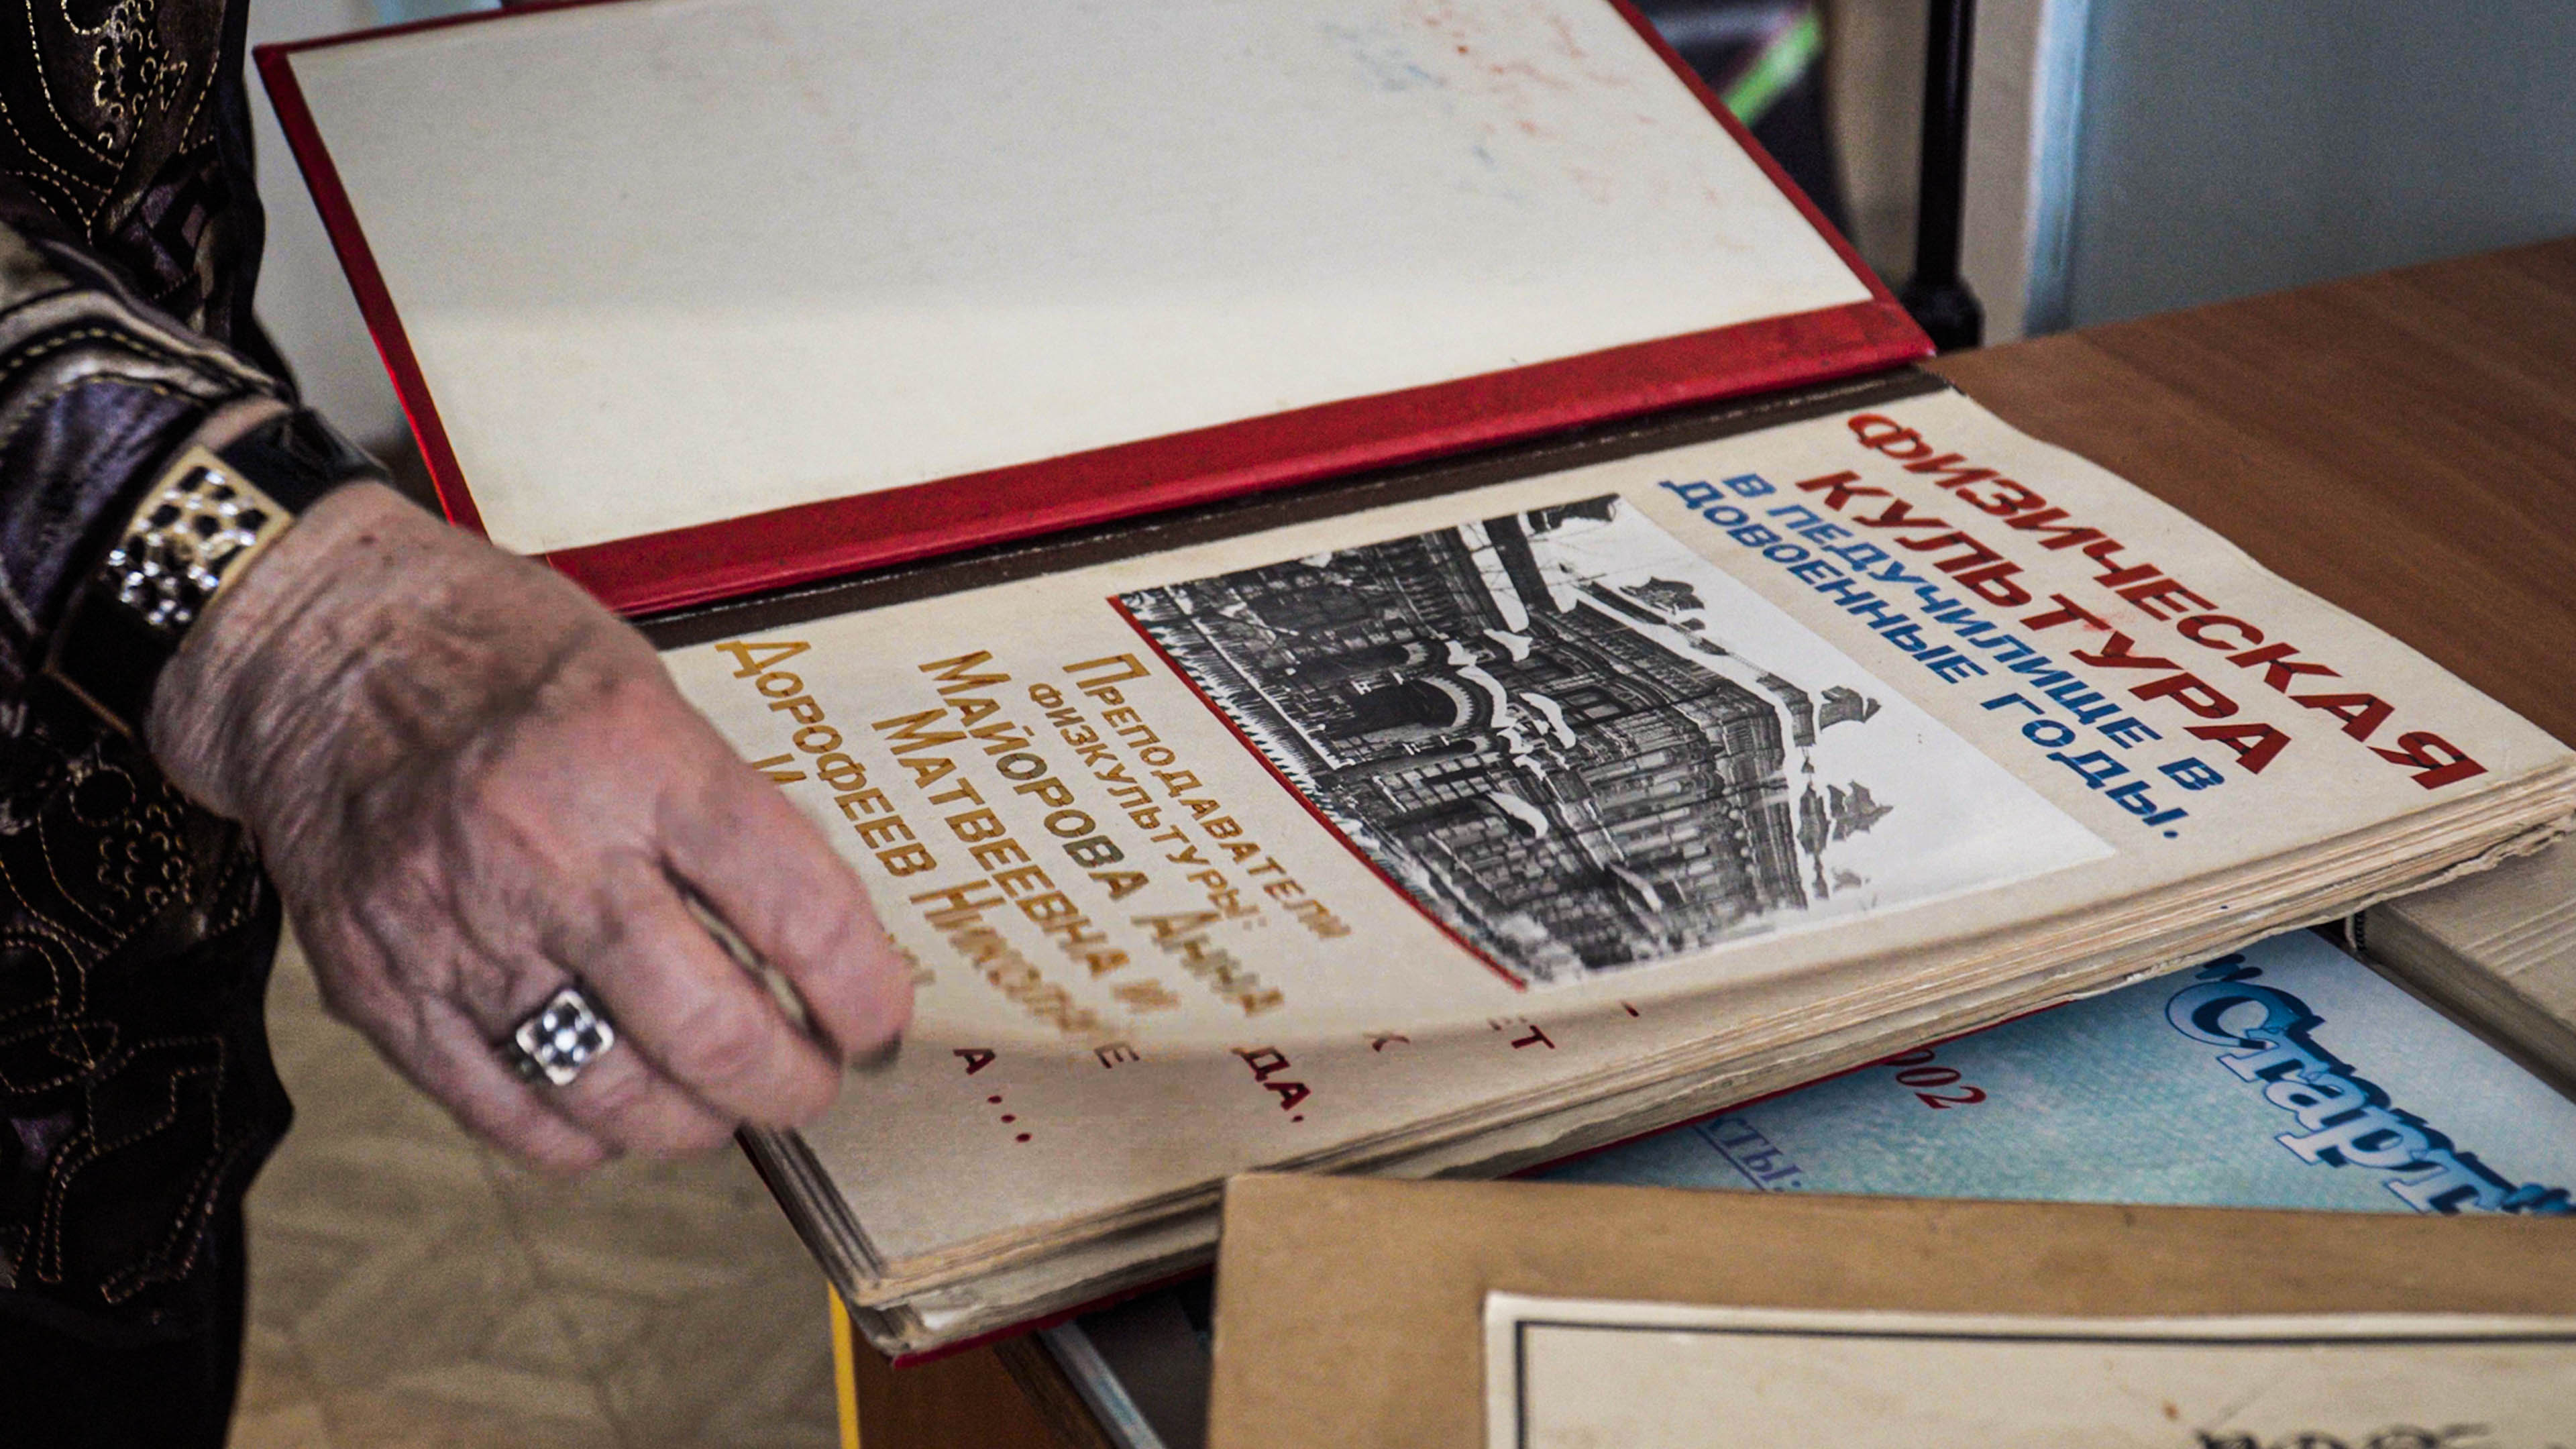 ФИЗИЧЕСКАЯ
КУЛЬТУРА
В ПЕДУЧИЛИЩЕ В
ДОВОЕННЫЕ ГОДЫ.
ПРЕПОДАВАТЕЛИ
ФИЗКУЛЬТУРЫ:
МАЙОРОВА АННА
МАТВЕЕВНА И
ДОРОФЕЕВ